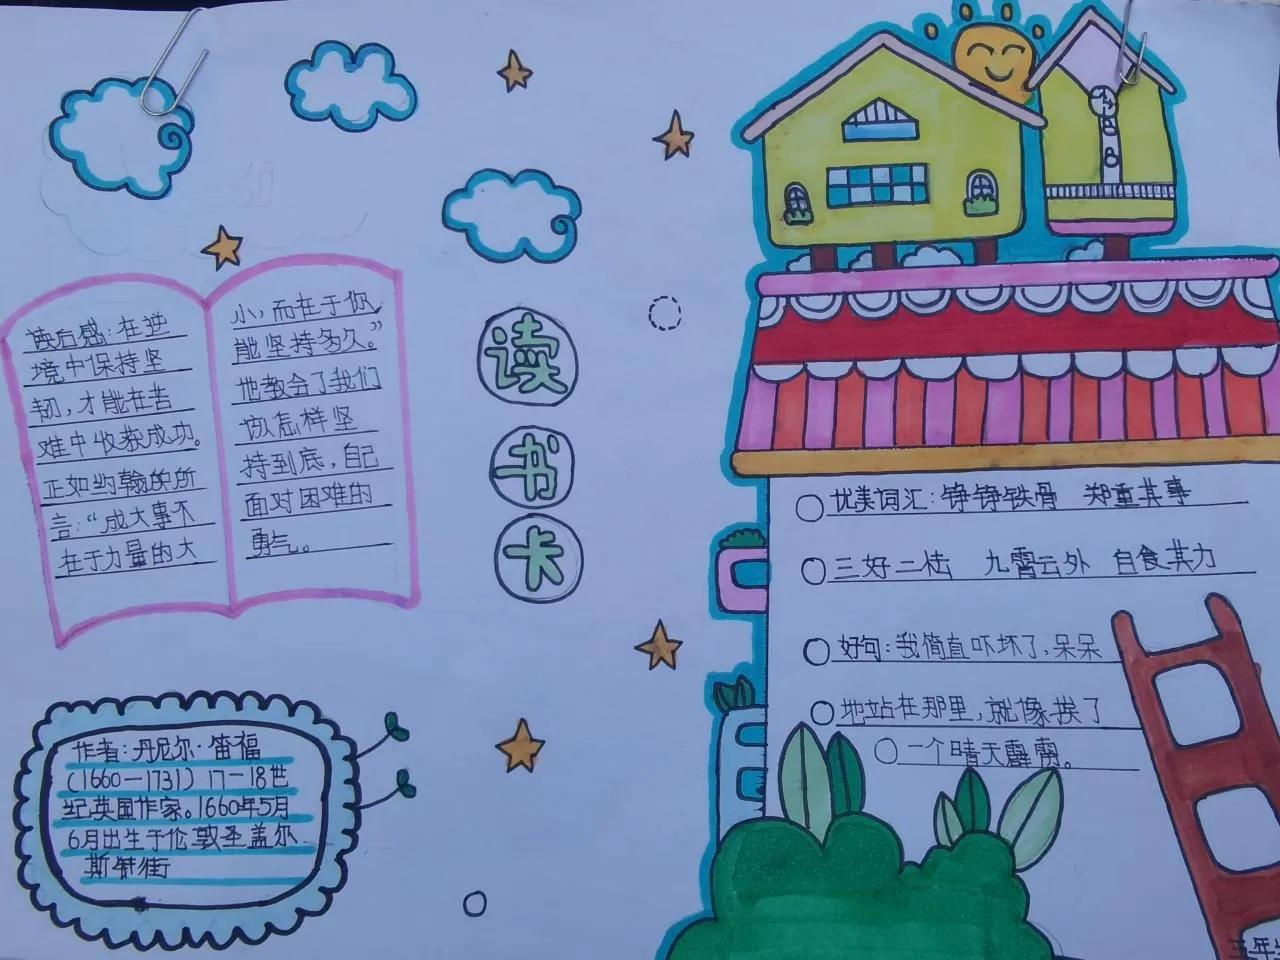 读后感：在逆
境中保持坚
韧，才能在苦
难中收获成功。
正如约翰的所
言：“成大事不
在于力量的大
小，而在于你
能坚持多久。”
他教会了我们
做怎样坚
持到底，自己
面对困难的
勇气。
读书卡
作者：丹尼尔·笛福
（1660—1731）17—18世
纪英国作家。1660年5月
6月出生于伦敦圣盖尔
斯街
优美词汇：铮铮铁骨 郑重其事
三好二怯 九霄云外 自食其力
好句：我简直吓坏了，呆呆
地站在那里，就像挨了
一个晴天霹雳。